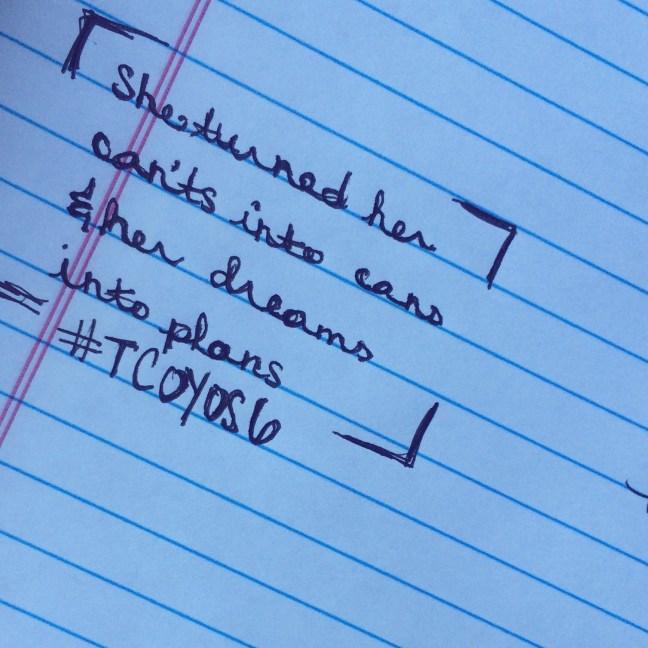 She turned her
can'ts into cans
& her dreams
into plans
#TCOYOS6